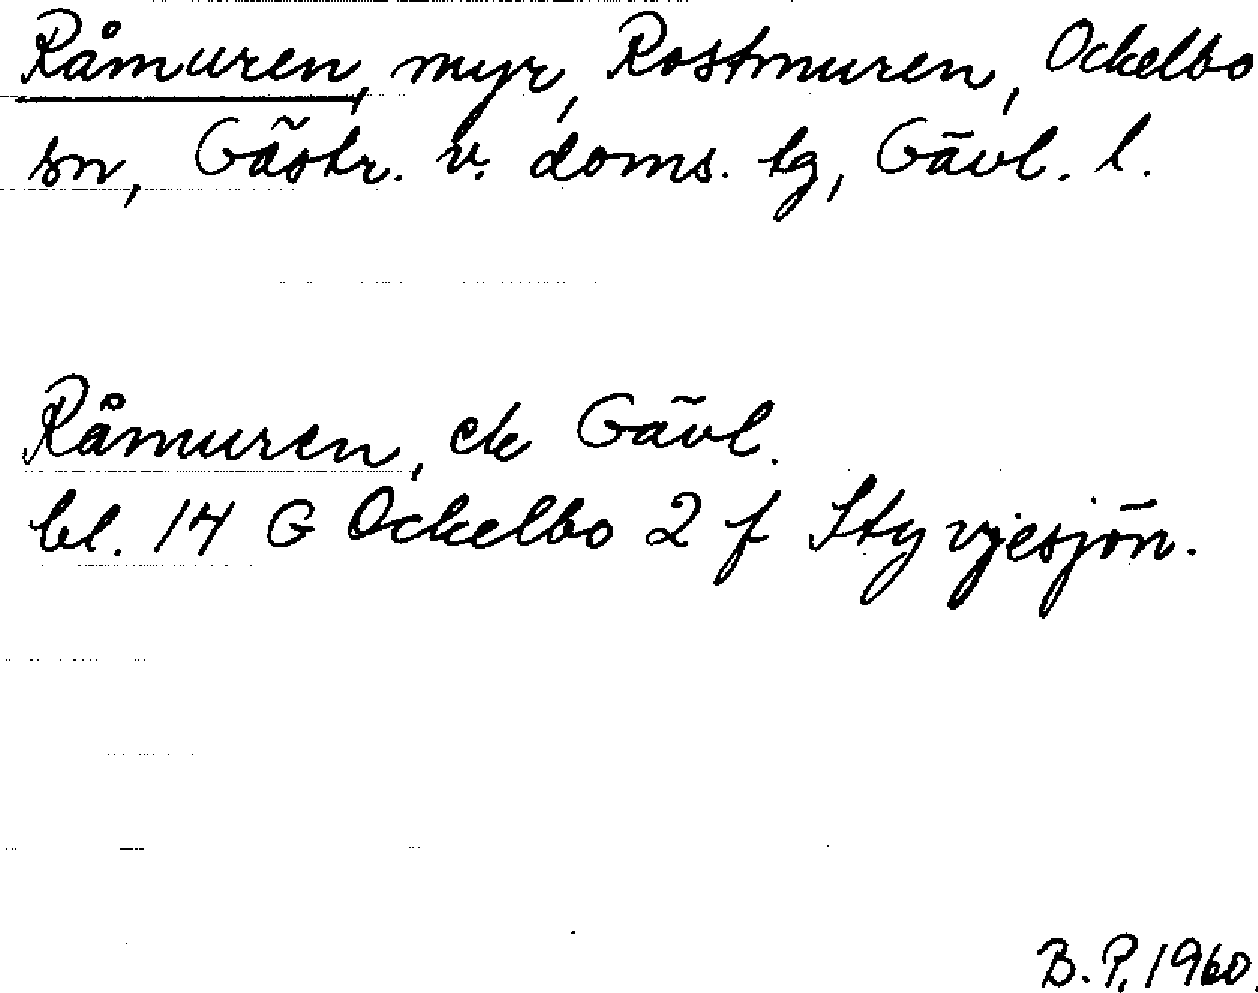 Råmuren, myr, Rostmuren, Ockelbo
sn, Gästr. v. doms. tg, Gävl. l.
Råmuren, ek Gävl.
bl. 14 G Ockelbo 2 f Styvjesjön.
B.P. 1960.